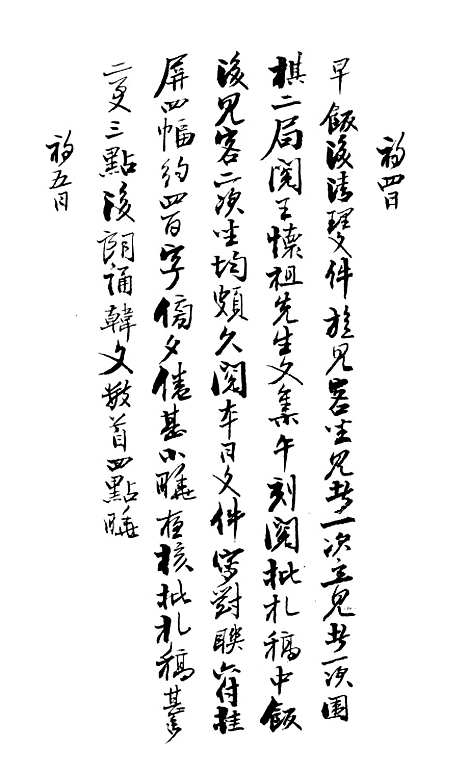 初四日
早飯後清理文件旋見客坐見者一次立見者一次圍
棋二局閱王懷祖先生文集午刻閱批札稿中飯
後見客二次坐均頗久閱本日文件寫對聯六付挂
屏四幅約四百字傍夕倦甚小睡夜核批札稿甚多
二更三點後朗誦韓文數首四點睡
初五日